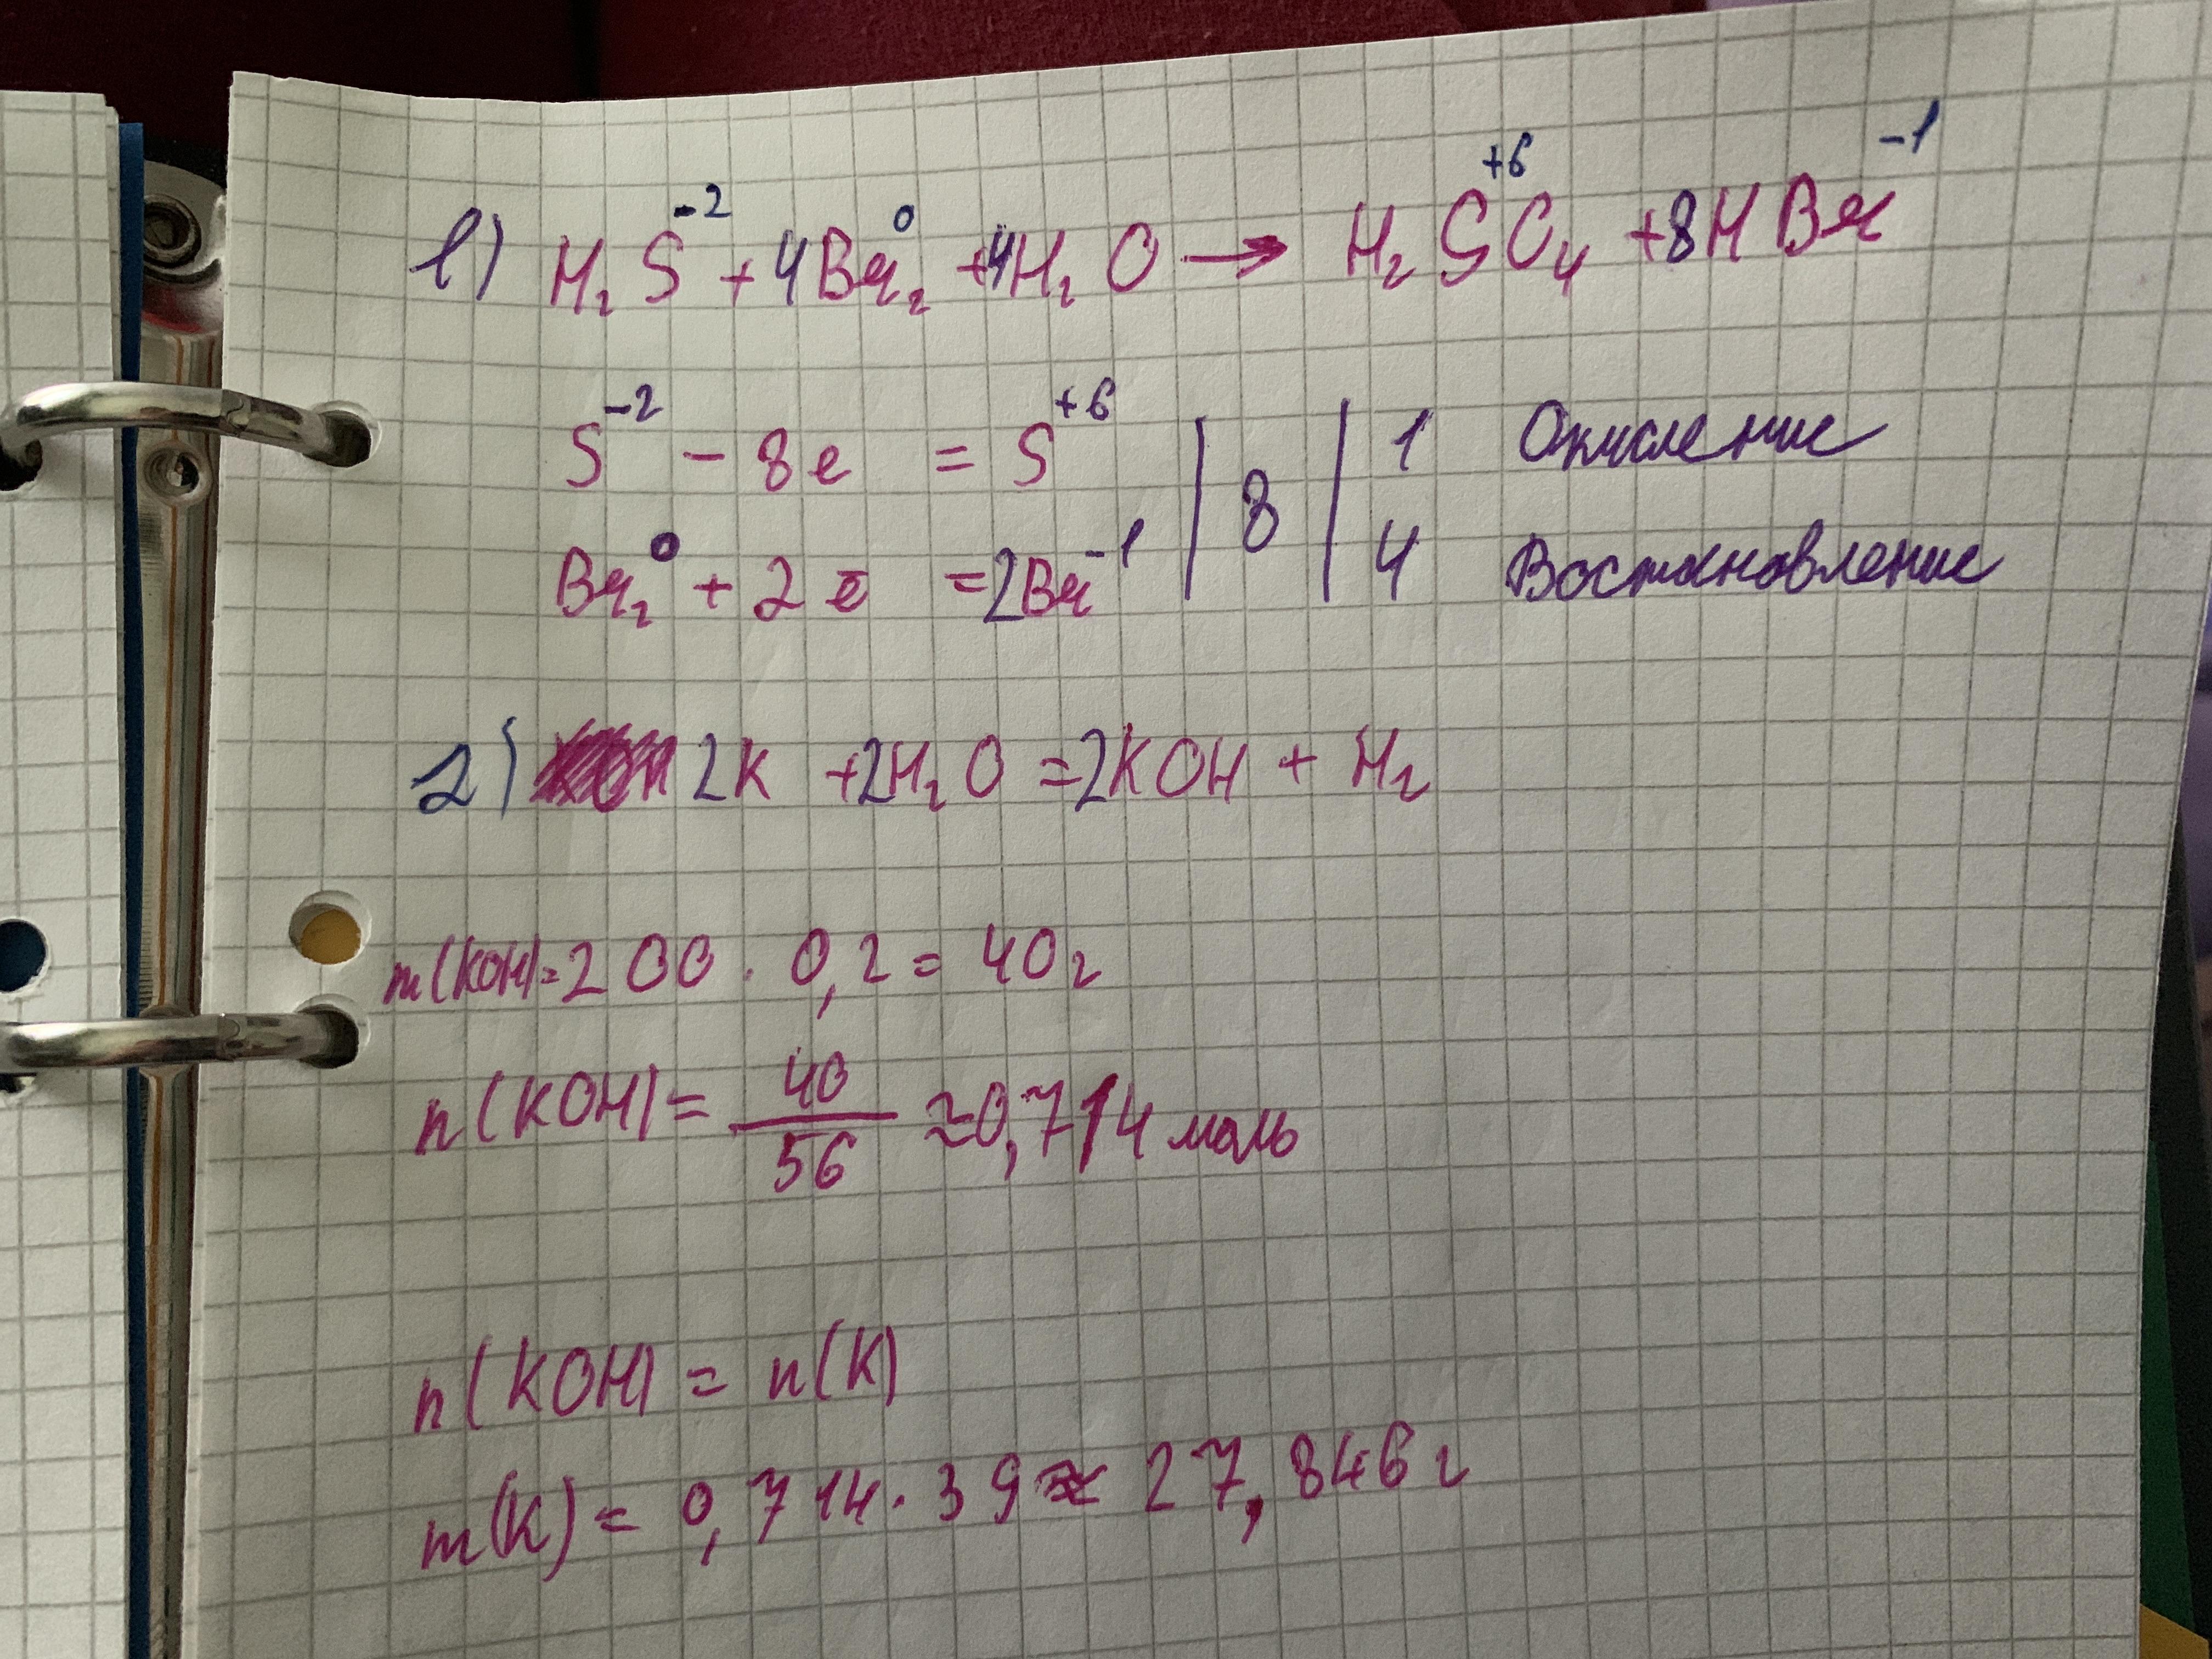 1) H₂S⁻² + 4Br₂⁰ + 4H₂O → H₂S⁺⁶O₄ + 8HBr⁻¹
S⁻² - 8e = S⁺⁶ | 8 | 1 Окисление
Br₂⁰ + 2ē = 2Br⁻¹ | | 4 Востановление
2) 2K + 2H₂O = 2KOH + H₂
m(KOH) = 200 · 0,2 = 40г
n(KOH) = 40/56 ≈ 0,714 моль
n(KOH) = n(K)
m(K) = 0,714 · 39 ≈ 27,846 г